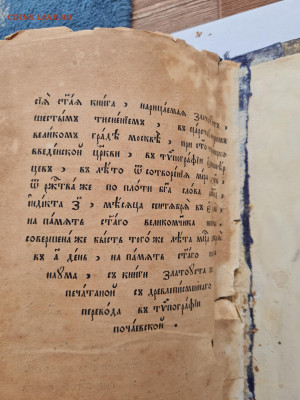 сїѧ ст҃аѧ книга, нарицаемаѧ
шестымъ тисненїемъ, въ
великомъ градѣ москвѣ, при
введенской цр҃кви, въ тѵпографїи
цевъ, въ лѣто ѿ сотворенїѧ мїра
ѿ рж҃тва же по плоти бг҃а слова
їндїкта з҃, мѣсѧца сентѧбрѧ въ
на памѧть ст҃аго великомч҃ника
совершена же бысть тогѡ же лѣта
въ а҃ день, на памѧть ст҃аго
наума, съ книги златоуста
печатаной съ древлеписменнаго
перевода въ тѵпографїи
почаевской.